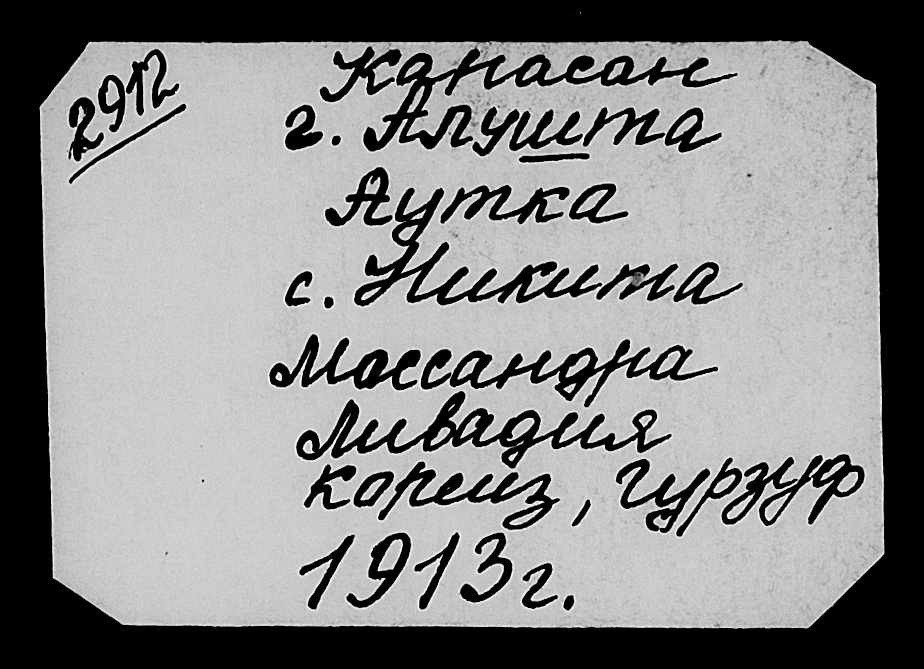 2912
Капасан
г. Алушта
Аутка
с. Никита
Массандра
Ливадия
Кореиз, Гурзуф
1913 г.